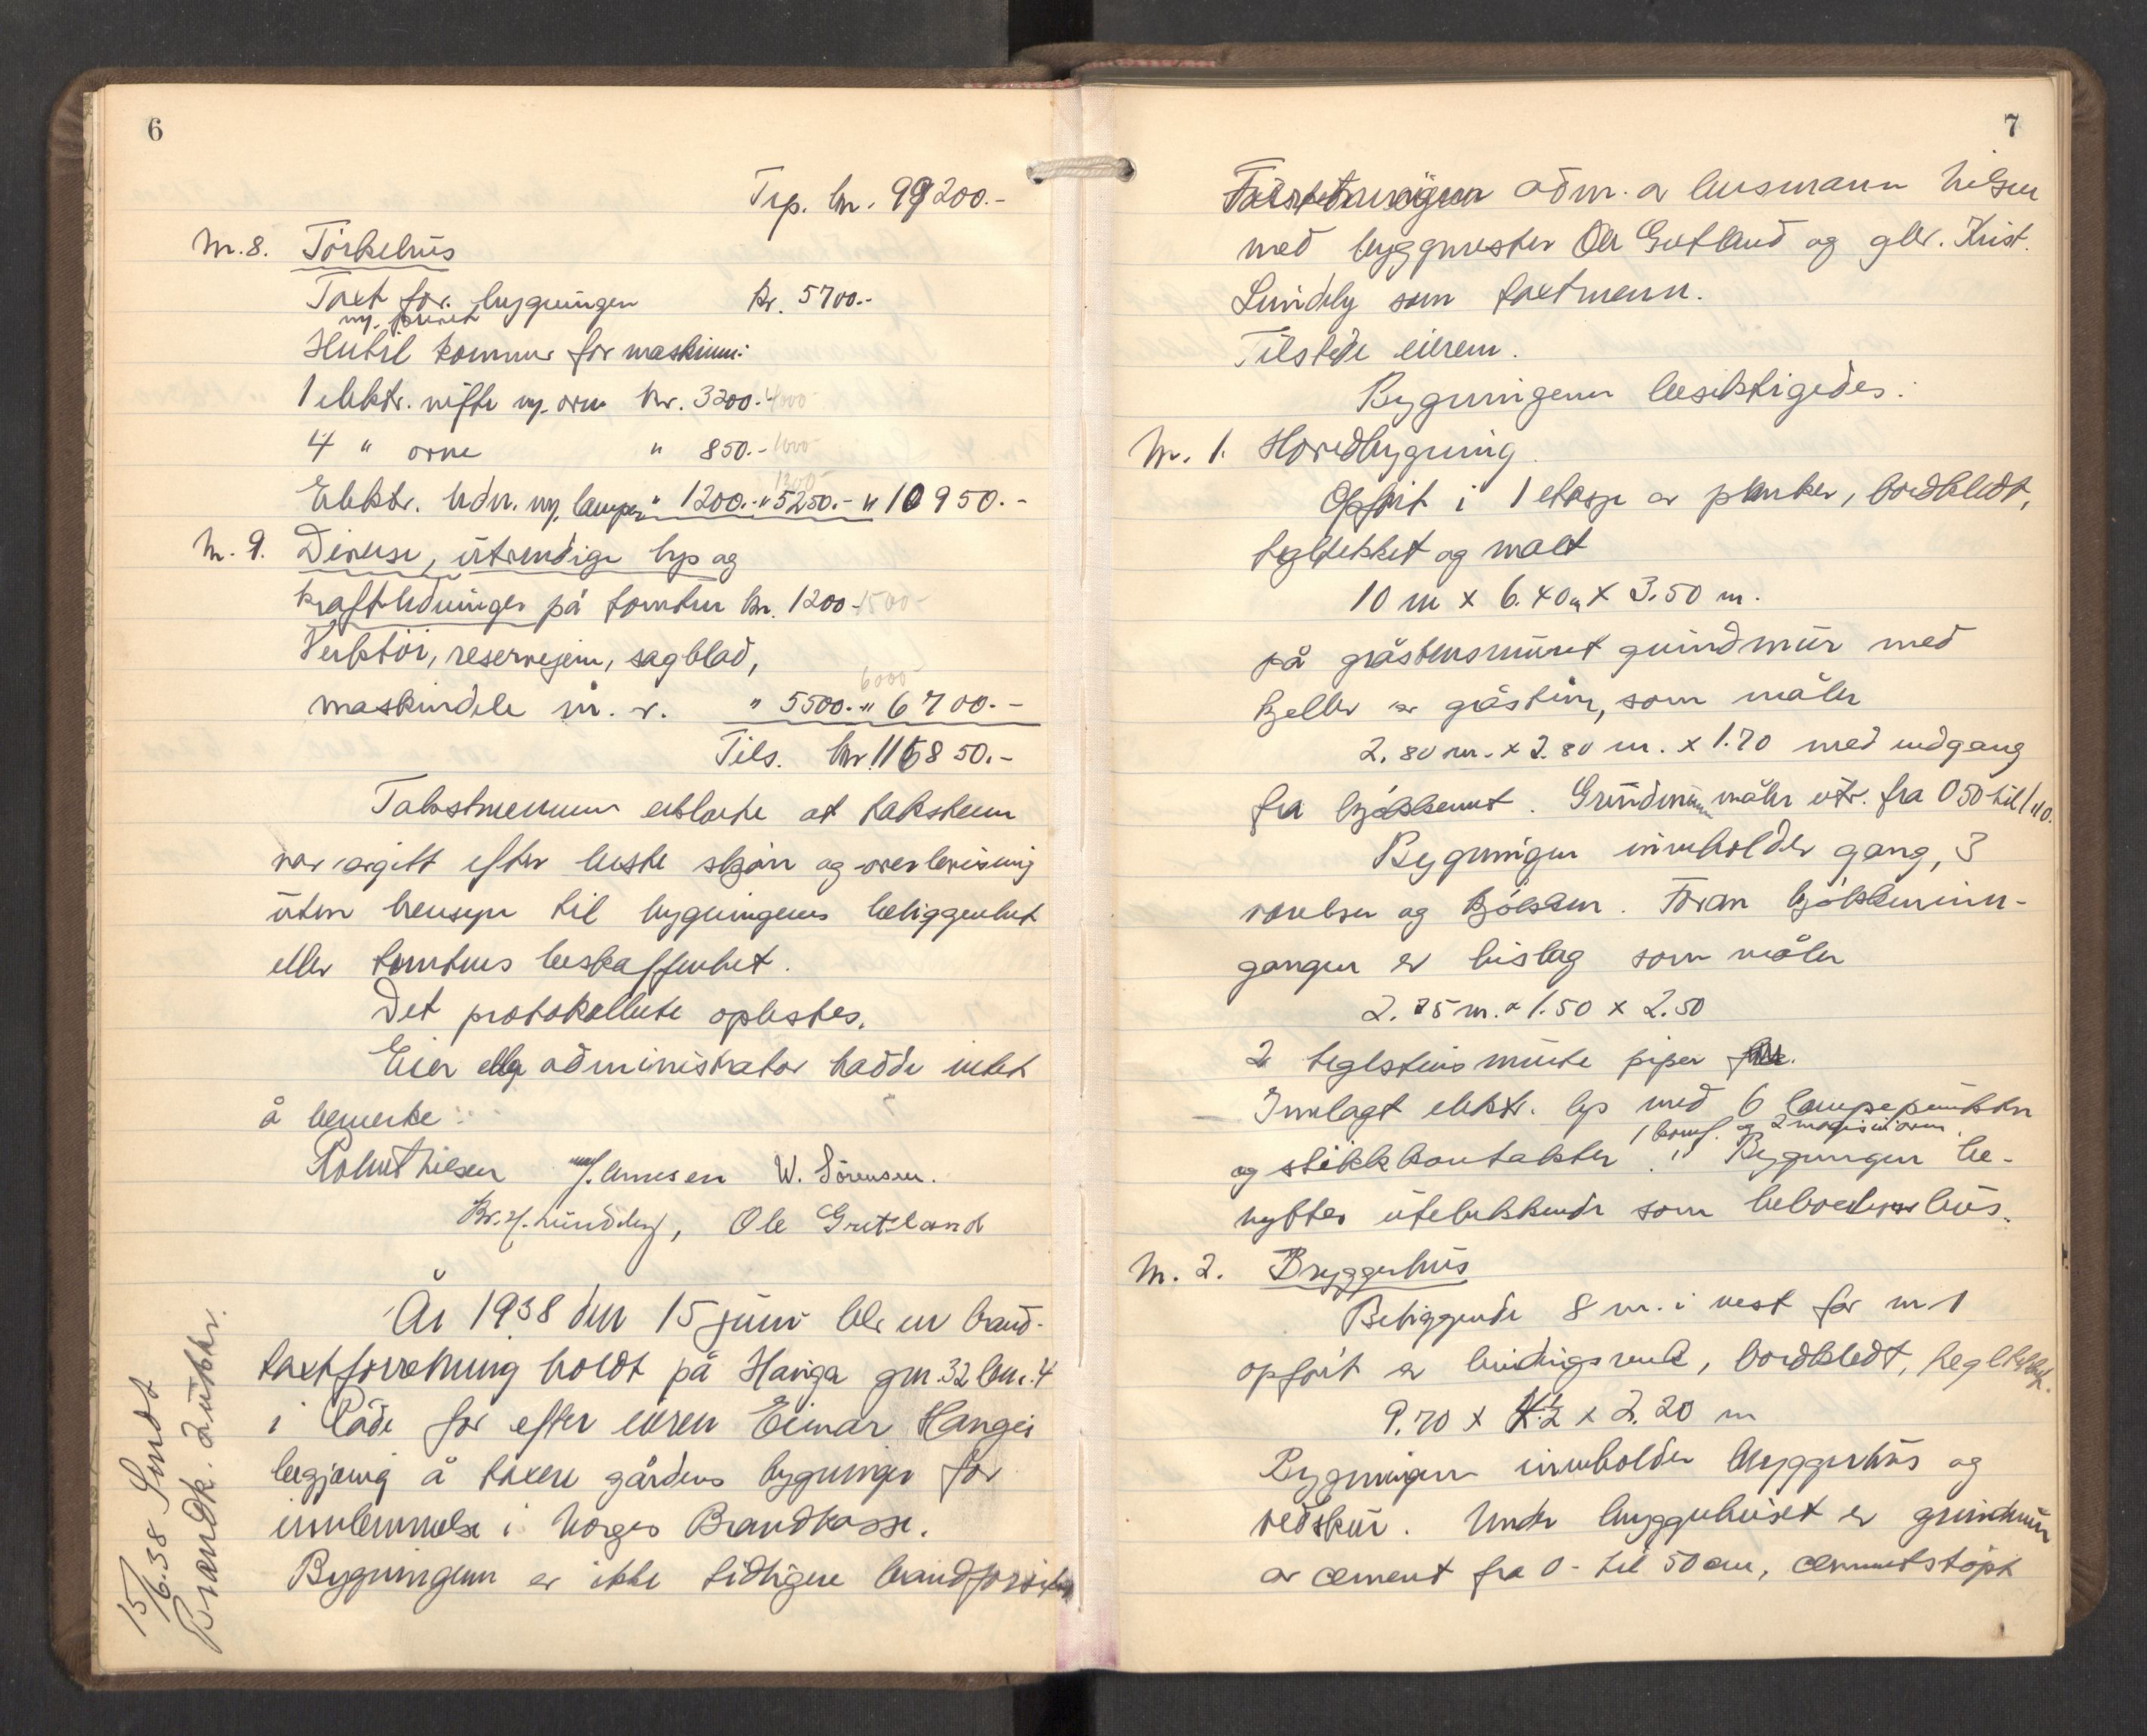 6
Trp. kr. 99200.-
Nr. 8. Tørkehus
Taxt for bygningen kr. 5700.-
Hertil kommer for maskiner:
1 elektr. vifte m. ovn kr. 3200.- 4000-
4 " ovne " 850.- 1000-
1200-
Elektr. ledn. m. lamper " 1200.- " 5250.- " 10950.-
Nr. 9. Diverse, utvendige lys og
kraftledninger på tomten kr. 1200.- 1500-
Verktøi, reservejern, sagblad,
6000-
maskindele m. v. " 5500.- " 6700.-
Tils. kr. 116850.-
Takstmennene erklærte at taksten
var avgitt efter beste skjøn og overbevisning
uten hensyn til bygningens beliggenhet
eller tomtens beskaffenhet.
Det protokollerte oplestes.
Eier eller administrator hadde intet
å bemerke.
Robert Nilsen J. Arnesen W. Sörensen.
Kr. H. Lundeby, Ole Gretland
År 1938 den 15 juni blev en brand-
taxtforretning holdt på Hauga gnr. 32 bnr. 4
i Råde for efter eieren Einar Hauges
begjæring å taxere gårdens bygninger for
innlemmelse i Norges Brandkasse.
Bygningene er ikke tidligere brandforsikret
15/6.38 Sendt
Brandk. 2 utskr.
7
Forretningen adm. av lensmann Nilsen
med byggmester Ole Gretland og gbr. Krist.
Lundeby som taxtmenn.
Tilstede eieren.
Bygningene besiktigedes:
Nr. 1. Hovedbygning.
Opført i 1 etasje av planker, bordkledt,
tegltekket og malt
10 m x 6.40 m x 3.50 m.
på gråstensmuret grundmur med
kjeller av gråsten, som måler
2.80 m. x 2.80 m. x 1.70 med indgang
fra kjøkkenet. Grundmuren måler utv. fra 0 50 til 1.10.
Bygningen inneholder gang, 3
værelser og kjøkken. Foran kjøkkeninn-
gangen er bislag som måler
2.25 m. x 1.50 x 2.50
2 teglstensmurte piper.
Innlagt elektr. lys med 6 lampepunkter
1 komf. og 2 magasinovn.
og stikkontakter. Bygningen be-
nyttes utelukkende som beboelseshus.
Nr. 2. Bryggerhus
Beliggende 8 m. i vest for nr 1
opført av bindingsverk, bordkledt, tegltekket.
9.70 x 4.2 x 2.20 m
Bygningen inneholder bryggerhus og
vedskur. Under bryggerhuset er grundmur
av cement fra 0 - til 50 cm, cementstøpt